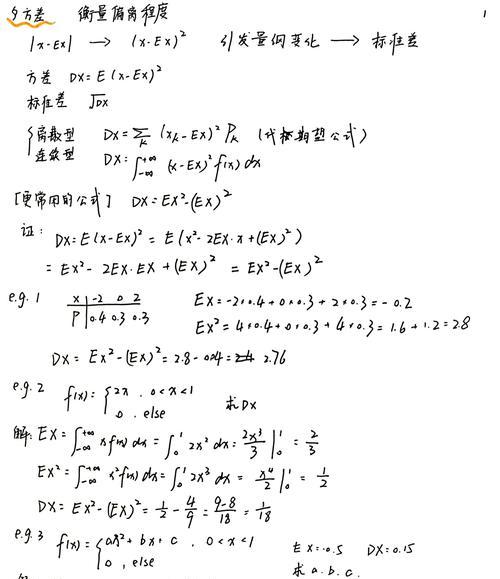 方差 衡量偏离程度
1
|x-EX| → (x-EX)² 引发量纲变化 → 标准差
方差 DX=E(x-EX)²
标准差 √DX
离散型 DX=∑k (xk-EX)² Pk (代标期望公式)
连续型 DX=∫-∞+∞ (x-EX)² f(x) dx
[更常用的公式] DX=EX²-(EX)²
证: DX=E(x-EX)² = E(x²-2EX·x+(EX)²)
= EX²-2EX·EX+(EX)² = EX²-(EX)²
e.g. 1 x -2 0 2 EX=-2×0.4+0×0.3+2×0.3=-0.2
P 0.4 0.3 0.3 EX²=4×0.4+0×0.3+4×0.3=1.6+1.2=2.8
DX=EX²-(EX)²=2.8-0.04= 2.76
e.g. 2 f(x)={2x, 0<x<1 求DX
0, else
解: EX=∫-∞+∞ xf(x) dx=∫01 2x² dx=2x³/3|01=2/3
EX²=∫-∞+∞ x²f(x) dx=∫01 2x³ dx=x⁴/2|01=1/2
DX=EX²-(EX)²=1/2-4/9=9-8/18=1/18
e.g. 3 f(x)={ax²+bx+c, 0<x<1 EX=0.5 DX=0.15
0, else 求a.b.c.